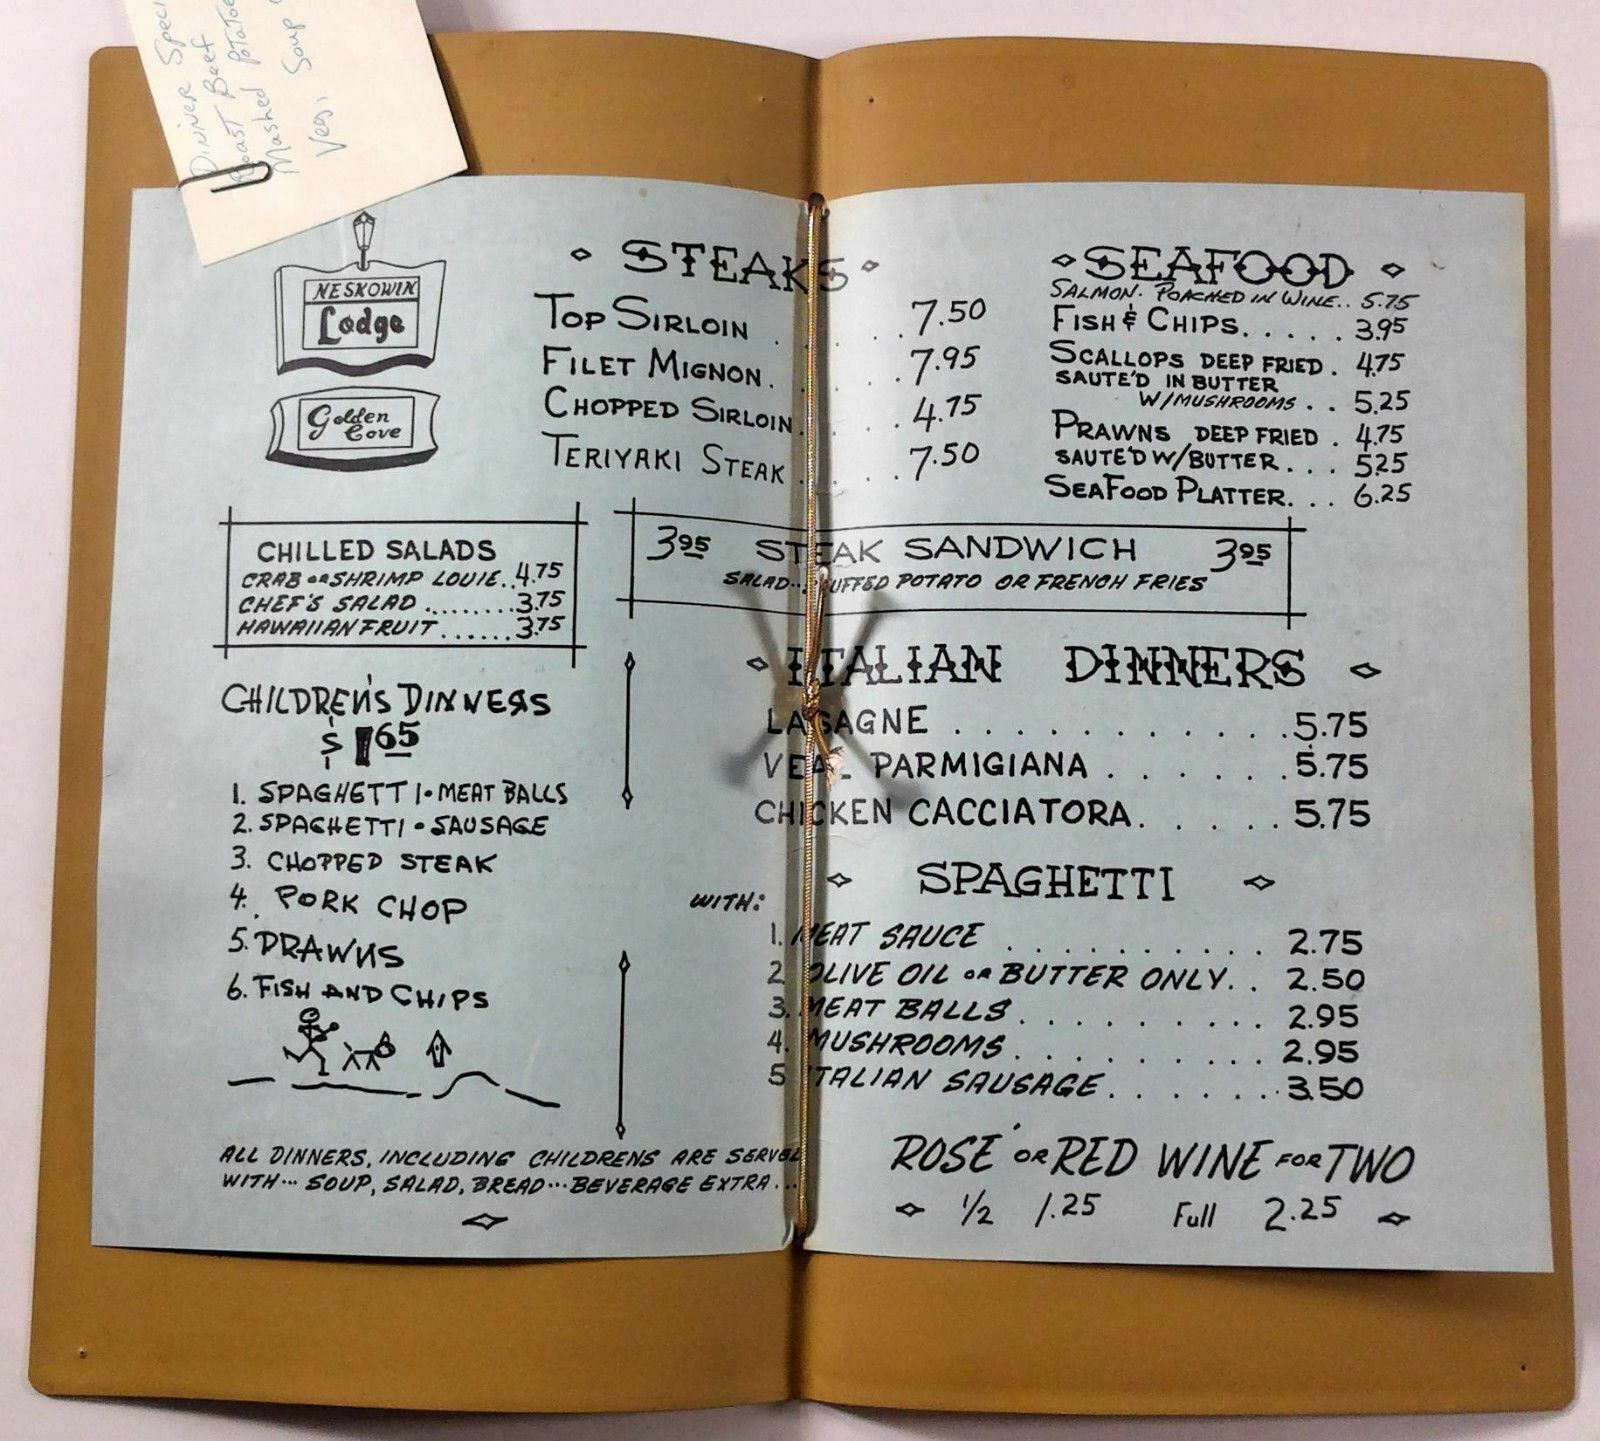 Dinner Speci
Roast Beef
Mashed Potatoe
Veg, Soup
NESKOWIN
Lodge
Golden
Cove
STEAKS
TOP SIRLOIN . . . . 7.50
FILET MIGNON. . . . 7.95
CHOPPED SIRLOIN. . . . 4.75
TERIYAKI STEAK . . . . 7.50
SEAFOOD
SALMON. POACHED IN WINE.. 5.75
FISH & CHIPS. . . . . 3.95
SCALLOPS DEEP FRIED . 4.75
SAUTE'D IN BUTTER
W/MUSHROOMS . . 5.25
PRAWNS DEEP FRIED . 4.75
SAUTE'D W/BUTTER. . . 5.25
SEAFOOD PLATTER. . . 6.25
CHILLED SALADS
CRAB OR SHRIMP LOUIE..4.75
CHEF'S SALAD ........3.75
HAWAIIAN FRUIT ......3.75
3.95 STEAK SANDWICH 3.95
SALAD... UFFED POTATO OR FRENCH FRIES
CHILDREN'S DINNERS
$ 1.65
1. SPAGHETTI • MEAT BALLS
2. SPAGHETTI • SAUSAGE
3. CHOPPED STEAK
4. PORK CHOP
5. PRAWNS
6. FISH AND CHIPS
ALL DINNERS, INCLUDING CHILDRENS ARE SERVED
WITH... SOUP, SALAD, BREAD...BEVERAGE EXTRA...
ITALIAN DINNERS
LASAGNE . . . . . . . . . . . .5.75
VEAL PARMIGIANA . . . . . . 5.75
CHICKEN CACCIATORA. . . . . .5.75
SPAGHETTI
WITH:
1. MEAT SAUCE . . . . . . . . . . 2.75
2. OLIVE OIL OR BUTTER ONLY. . . 2.50
3. MEAT BALLS . . . . . . . . . . 2.95
4. MUSHROOMS. . . . . . . . . . 2.95
5. ITALIAN SAUSAGE. . . . . . . 3.50
ROSE' OR RED WINE FOR TWO
1/2 1.25 Full 2.25